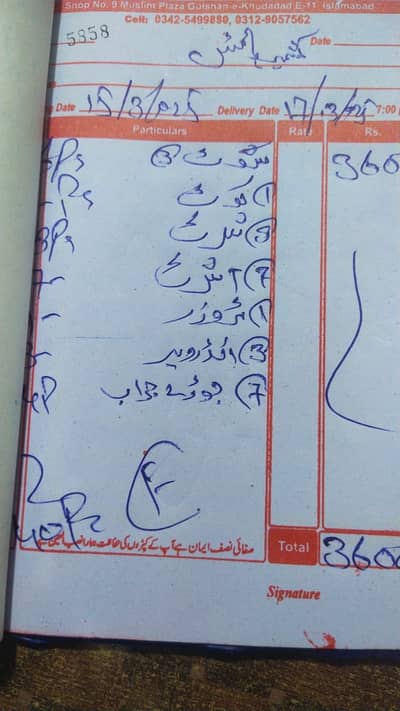 Shop No. 9 Muslim Plaza Gulshan-e-Khudadad E-11 Islamabad
Cell: 0342-5499880, 0312-9057562
5858
Date
Date 15/3/025 Delivery Date 17/3/025 7:00
Particulars Rate Rs.
سوٹ 3 360
1 کوٹ
3 شرٹ
7 ٹی شرٹ
1 ٹروزر
3 انڈرویر
7 جوڑے جراب
40Ps
صفائی نصف ایمان ہے آپ کے کپڑوں کی حفاظت ہمارا نصب العین ہے
Total 3600
Signature